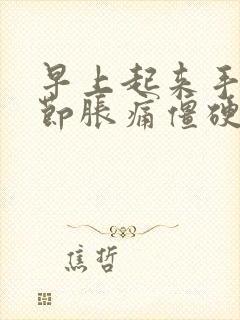 早上起来手
节胀痛僵硬
焦哲